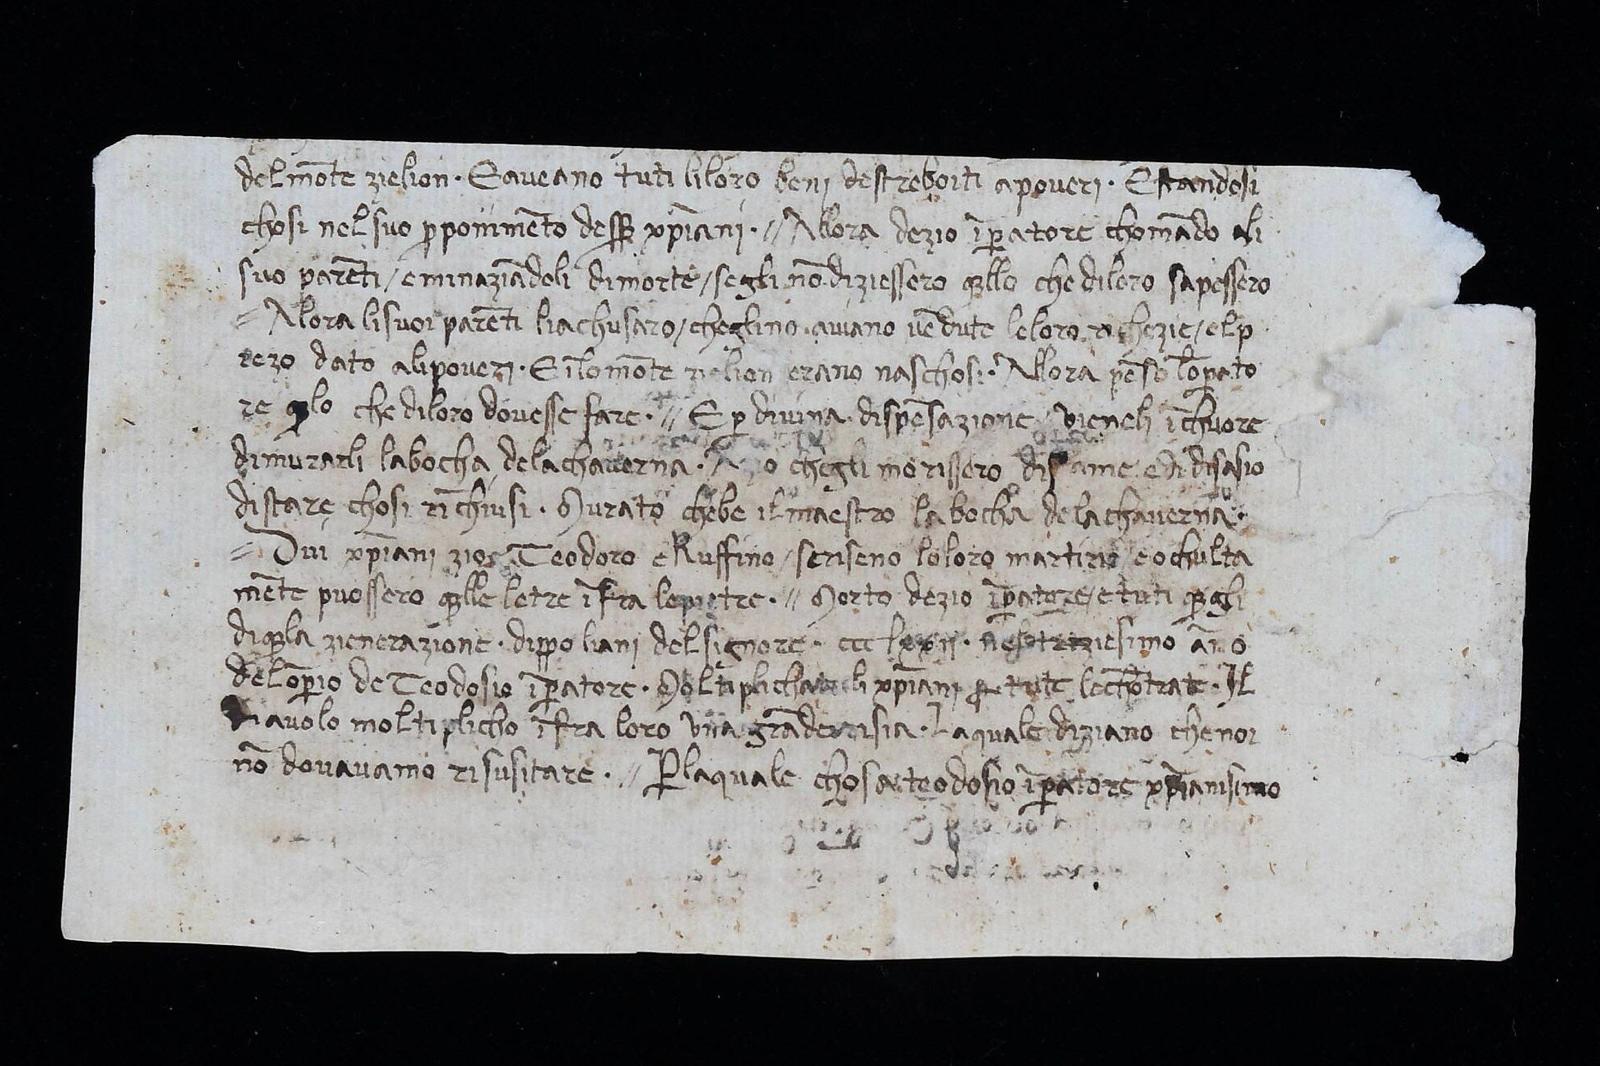 del mōte zielion · E aveano tuti li loro beni destreboiti a poveri · E standosi
chosi nel suo ꝓponimēto desẜ xp̄iani · // Allora dezio īꝑatore chomādo ali
suo parēti / e minaziādoli di morte / se gli nō diziessero q̄llo che di loro sapessero
// Alora li suoi parēti li achusaro / che glino · aviano vēdute le loro richezie / el p
rezo dato ali poveri · E ī lo mōte zielion erano naschosi · Allora pēso lōꝑato
re q̄lo che di loro dovesse fare · // E ꝑ divina dispēsazione / vieneli ī chuore
di murarli la bocha dela chaverna · A zio che gli morissero di fame e di disasio
di stare chosi rīchiusi · Murato chebe il maestro la bocha dela chaverna ·
// Dui xp̄iani zioe Teodoro e Ruffino / scriseno lo loro martirio / e ochulta
mēte puossero q̄lle letre īfra le pietre · // Morto dezio īꝑatore / e tuti q̄gli
di q̄la zienerazione · dippo li ani del signore · ccc lxxii · nel trezziesimo āno
del ōꝑio de Teodosio īꝑatore · Moltiplichavali xp̄iani ꝑ tute le chōtrate · Il
diavolo moltiplicho īfra loro una grāde risia · La quale diziano che noi
nō dovavamo risusitare · // Ꝑ la quale chosa teodosio īꝑatore xp̄ianisimo